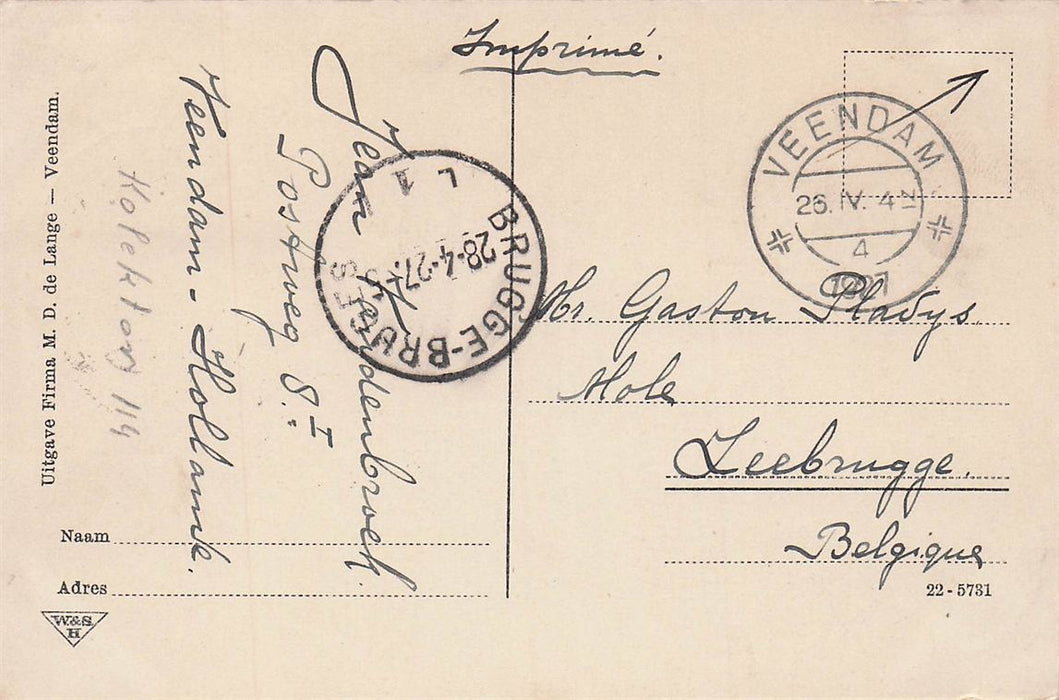 Imprimé.
VEENDAM
26. IV. 4 N
4
1927
BRUGGE-BRUGES
28-4-27
L 1
Mr. Gaston Pladys
Mole
Zeebrugge.
Belgique
22 - 5731
Jean
Postweg 8 I
Veendam - Holland.
Uitgave Firma M. D. de Lange — Veendam.
114
Naam
Adres
W.&S.
H